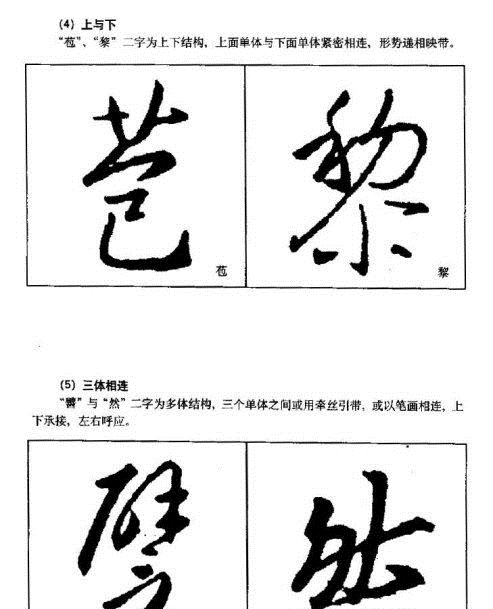 (4) 上与下
“苞”、“黎”二字为上下结构，上面单体与下面单体紧密相连，形势递相映带。
苞 黎
苞 黎
(5) 三体相连
“譬”与“然”二字为多体结构，三个单体之间或用牵丝引带，或以笔画相连，上
下承接，左右呼应。